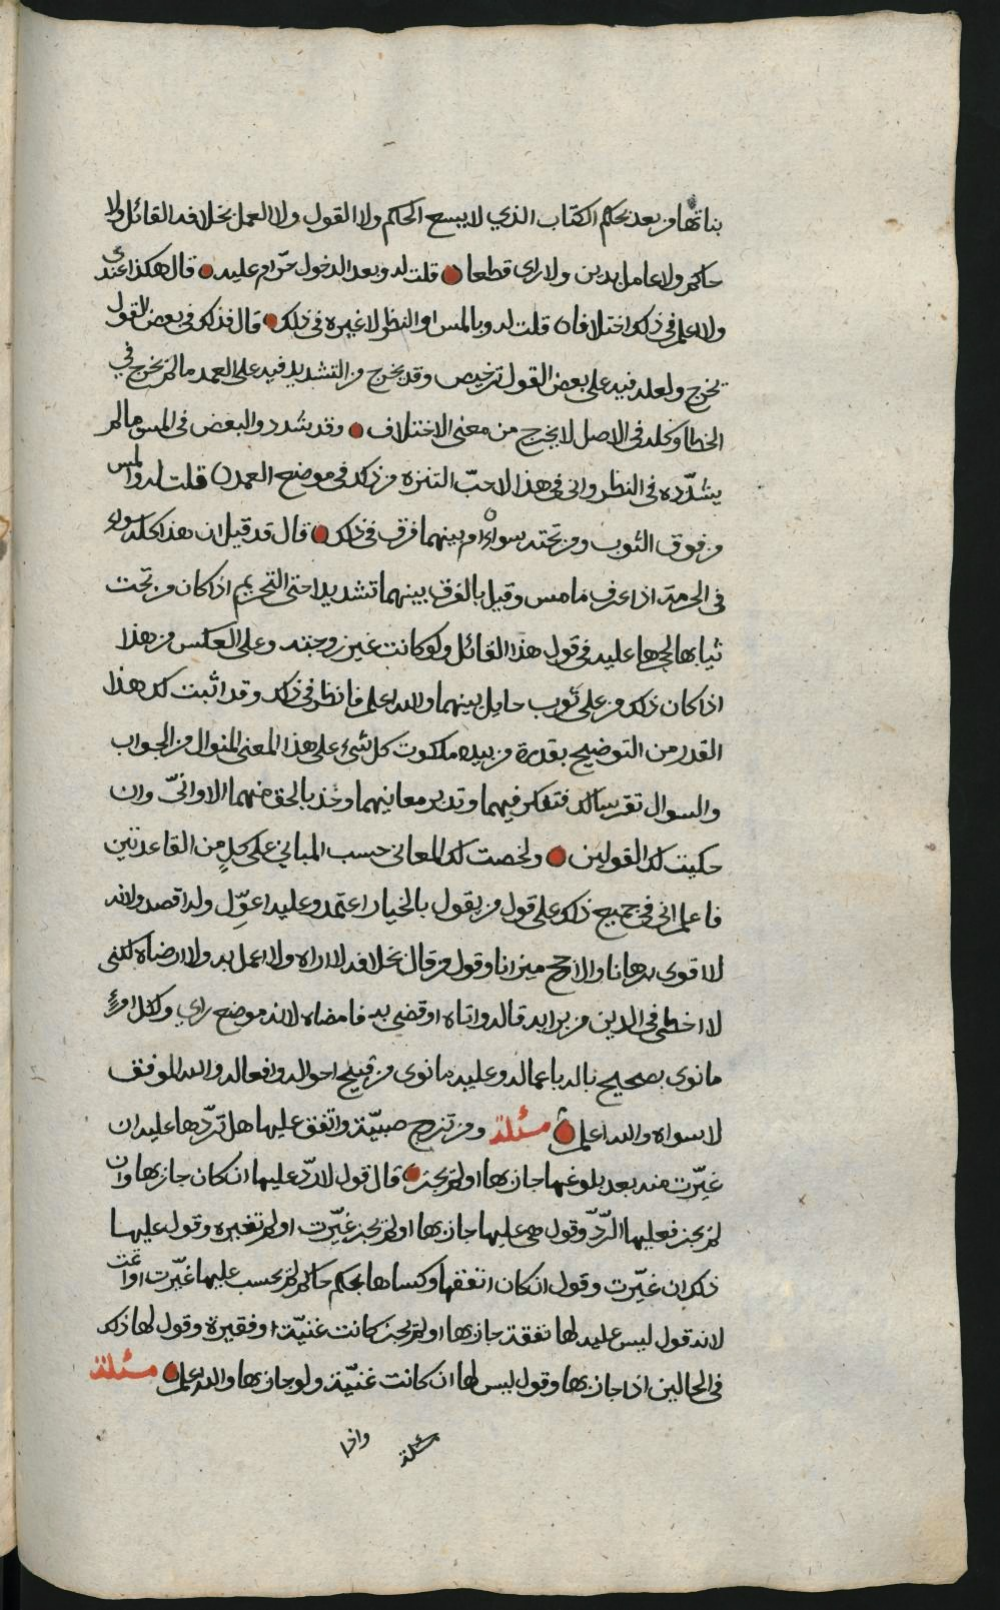 بناتها من بعد بحكم الكتاب الذي لا يسع الحاكم ولا القول ولا العمل بخلافه القائل ولا
حاكم ولا عامل بدين ولا راى قطعا قلت له وبعد الدخول حرام عليه قال هكذا عندى
ولا اعلم فى ذلك اختلافا قلت له وبالمس او النظر لا غيره فى ذلك قال فذلك فى بعض القول
يخرج ولعله فيه على بعض القول ترخيص وقد يخرج من التشديد فيه على العمد ما لم يخرج في
الخطا وكله فى الاصل لا يخرج من معنى الاختلاف وقد يشدد والبعض فى المس ما لم
يشدّده فى النظر وانى فى هذا لاحبّ التنزه من ذلك فى موضع العمد قلت له والمس
من فوق الثوب ومن تحته سواء ام بينهما فرق فى ذلك قال قد قيل ان هذا كله سواء
فى الحرمة اذا عرف ما مس وقيل بالفرق بينهما تشديدا حتى التحريم اذا كان من تحت
ثيابها لحرمها عليه فى قول هذا القائل ولو كانت غير زوجته وعلى العكس من هذا
اذا كان ذلك من على ثوب حايل بينهما والله اعلم فانظر فى ذلك وقد اثبت لك هذا
القدر من التوضيح بقدرة من بيده ملكوت كل شىء على هذا المعنى المنوال من الجواب
والسوال تقريبا لك فتفكر فيهما وتدبر معانيهما وخذ بالحق منهما الا وانّي وان
حكيت لك القولين ولخصت لك المعانى حسب المبانى على كلٍ من القاعدتين
فاعلم انى فى جميع ذلك على قول من يقول بالخيار اعتمد وعليه اعوّل وله اقصد ولانه
لا اقوى برهانا والارجح ميزانا وقول من قال بخلافه لا اراه ولا اعمل به ولا ارضاه لكنى
لا اخطى فى الدين من براىه قاله واتاه او قضى به فامضاه لانه موضع راي ولكل امرئ
ما نوى بصحيح باله باعماله وعليه ما نوى من قبيح احواله وافعاله والله الموفق
لا سواه والله اعلم مسئلة ومن تزوج صبيّة واتفق عليها هل تردّها عليه ان
غيّرت منه بعد بلوغها جاز بها او لم يجز قال قول لا ردّ عليها ان كان جاز بها وان
لم يجز فعليها الردّ وقول هى عليها جاز بها او لم يجز غيّرت او لم تغيره وقول عليها
ذلك ان غيّرت وقول ان كان انفقها وكساها بحكم حاكم لم يحسب عليها غيّرت او اتمت
لانه قول ليس عليه لها نفقة جاز بها او لم يجز كانت غنيّة او فقيرة وقول لها ذلك
فى الحالين اذا جاز بها وقول ليس لها ان كانت غنيّة ولو جاز بها والله اعلم مسئلة
مسئلة واذا